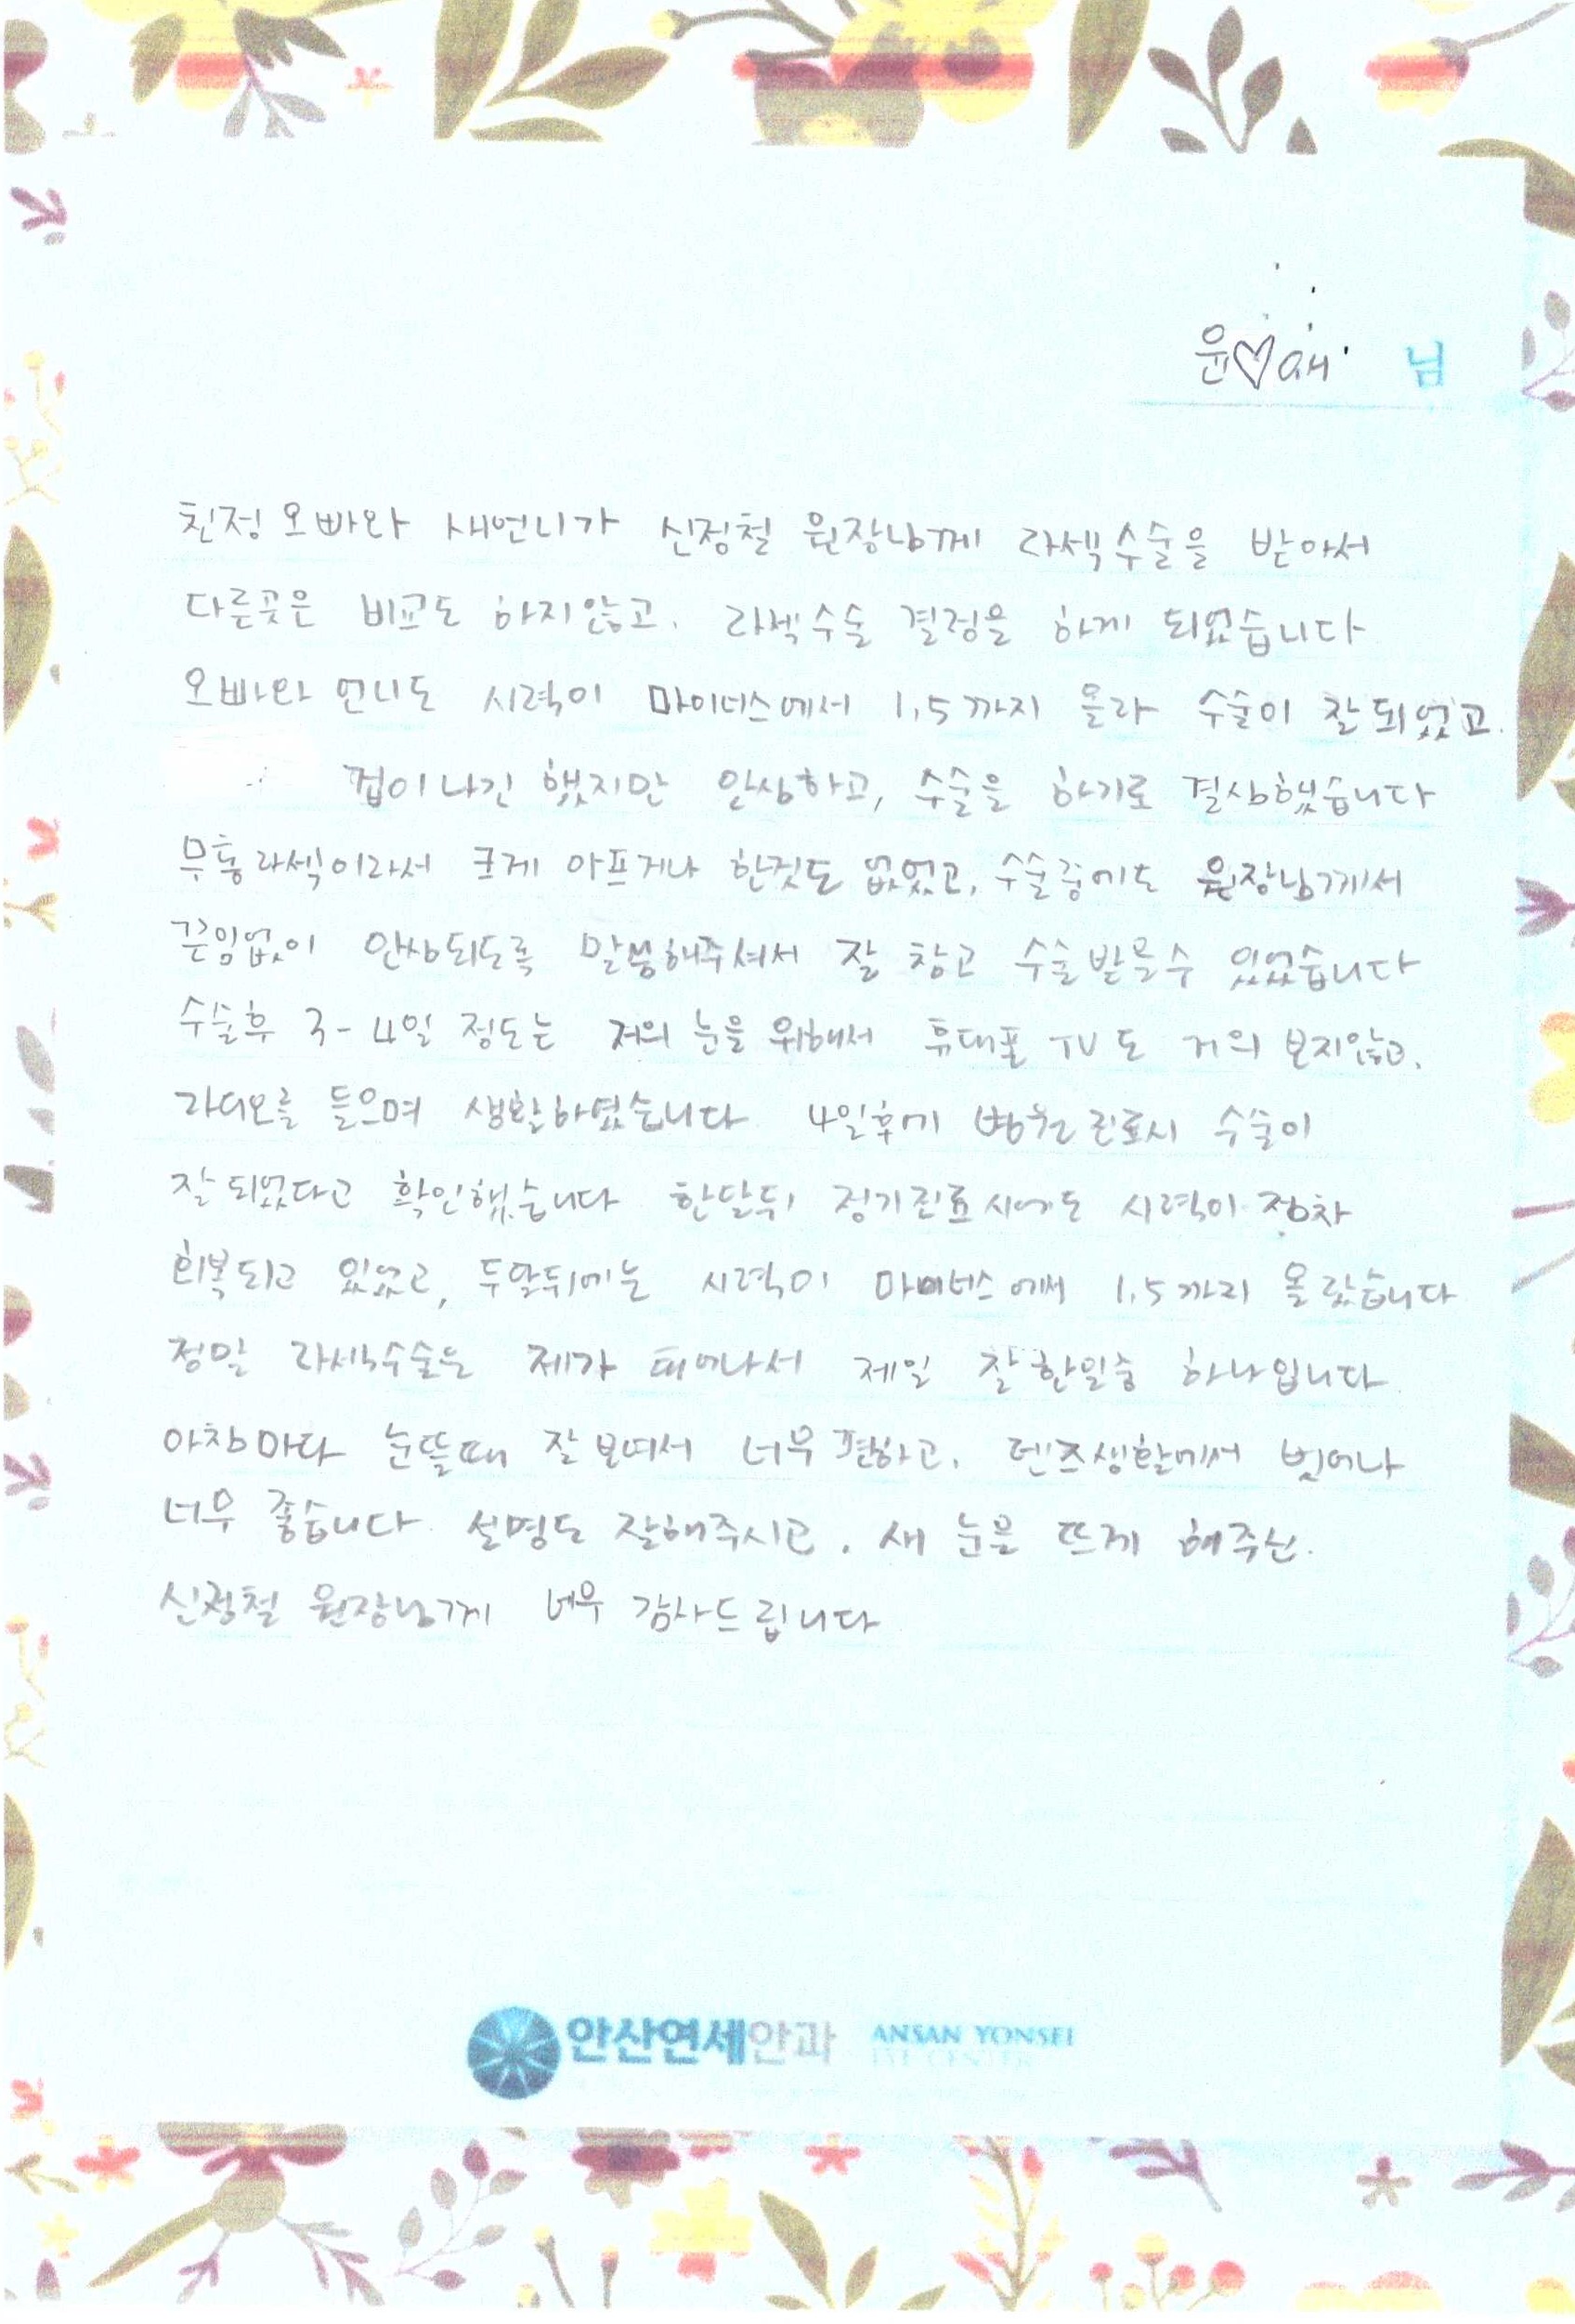 윤♡애 님
친정오빠와 새언니가 신정철 원장님께 라섹수술을 받아서
다른곳은 비교도 하지않고, 라섹수술 결정을 하게 되었습니다
오빠와 언니도 시력이 마이너스에서 1.5까지 올라 수술이 잘되었고.
겁이나긴 했지만 안심하고, 수술을 하기로 결심했습니다
무통라섹이라서 크게 아프거나 한것도 없었고, 수술중에도 원장님께서
끊임없이 안심되도록 말씀해주셔서 잘 참고 수술받을수 있었습니다
수술후 3-4일 정도는 저의 눈을 위해서 휴대폰 TV도 거의 보지않고.
라디오를 들으며 생활하였습니다 4일후에 병원진료시 수술이
잘되었다고 확인했습니다 한달뒤 정기진료시에도 시력이 점차
회복되고 있었고, 두달뒤에는 시력이 마이너스에서 1.5까지 올랐습니다
정말 라섹수술은 제가 태어나서 제일 잘한일중 하나입니다
아침마다 눈뜰때 잘보여서 너무 편하고, 렌즈생활에서 벗어나
너무 좋습니다. 설명도 잘해주시고. 새 눈을 뜨게 해주신.
신정철 원장님께 너무 감사드립니다
안산연세안과 ANSAN YONSEI
EYE CENTER